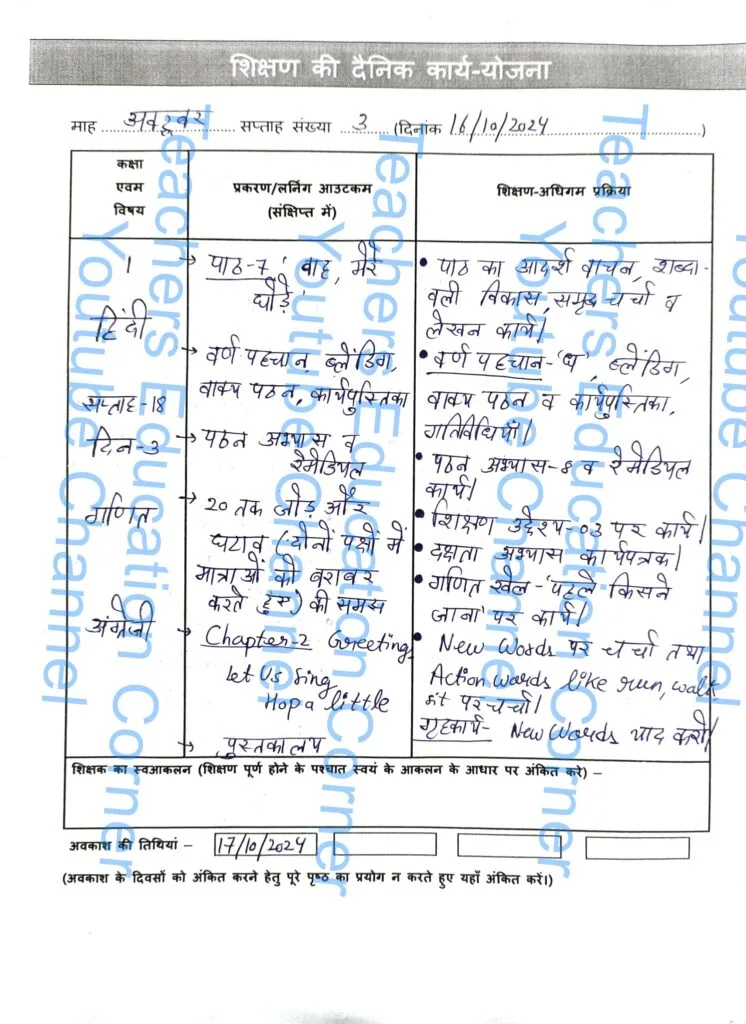 शिक्षण की दैनिक कार्य-योजना
माह अक्टूबर सप्ताह संख्या 3 (दिनांक 16/10/2024)
कक्षा
एवम
विषय
प्रकरण/लर्निंग आउटकम
(संक्षिप्त में)
शिक्षण-अधिगम प्रक्रिया
1
हिंदी
सप्ताह-18
दिन-3
→ पाठ-7 'वाह, मेरे
घोड़े'
→ वर्ण पहचान, ब्लेंडिंग,
वाक्य पठन, कार्यपुस्तिका
→ पठन अभ्यास व
रेमेडियल
• पाठ का आदर्श वाचन, शब्दा-
वली विकास, समृद्ध चर्चा व
लेखन कार्य।
• वर्ण पहचान-'ध', ब्लेंडिंग,
वाक्य पठन व कार्यपुस्तिका,
गतिविधियाँ।
• पठन अभ्यास-8 व रेमेडियल
कार्य।
गणित
→ 20 तक जोड़ और
घटाव (दोनों पक्षों में
मात्राओं को बराबर
करते हुए) की समझ
• शिक्षण उद्देश्य-03 पर कार्य।
• दक्षता अभ्यास कार्यपत्रक।
• गणित खेल-'पहले किसने
जाना' पर कार्य।
अंग्रेजी
→ Chapter-2 Greetings
Let Us Sing
Hop a little
→ पुस्तकालय
• New Words पर चर्चा तथा
Action words like run, walk
sit पर चर्चा।
गृहकार्य- New Words याद करो।
शिक्षक का स्वआकलन (शिक्षण पूर्ण होने के पश्चात स्वयं के आकलन के आधार पर अंकित करे) –
अवकाश की तिथियां – 17/10/2024
(अवकाश के दिवसों को अंकित करने हेतु पूरे पृष्ठ का प्रयोग न करते हुए यहाँ अंकित करें।)
Teachers Education Corner
Youtube Channel
Teachers Education Corner
Youtube Channel
Teachers Education Corner
Youtube Channel